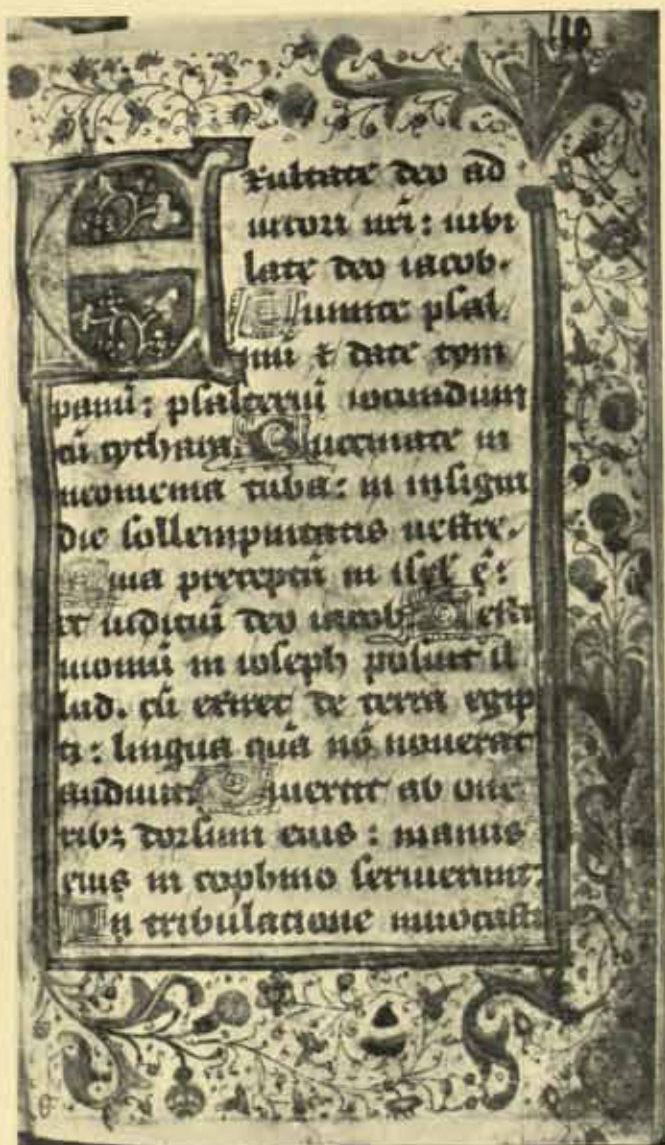 110
Exultate deo ad
iutori nri: iubi
late deo iacob.
Sumite psal
mū & date tym
panū: psalteriū iocundum
cū cythara. Buccinate in
neomenia tuba: in insigni
die sollempnitatis uestre.
Quia preceptū in isrl' ē:
et iudiciū deo iacob. Testi
moniū in ioseph posuit il
lud. cū exiret de terra egip
ti: lingua quā nō nouerat
audiuit. Diuertit ab one
ribꝫ dorsum eius: manus
eius in cophino seruierunt.
In tribulacione inuocasti